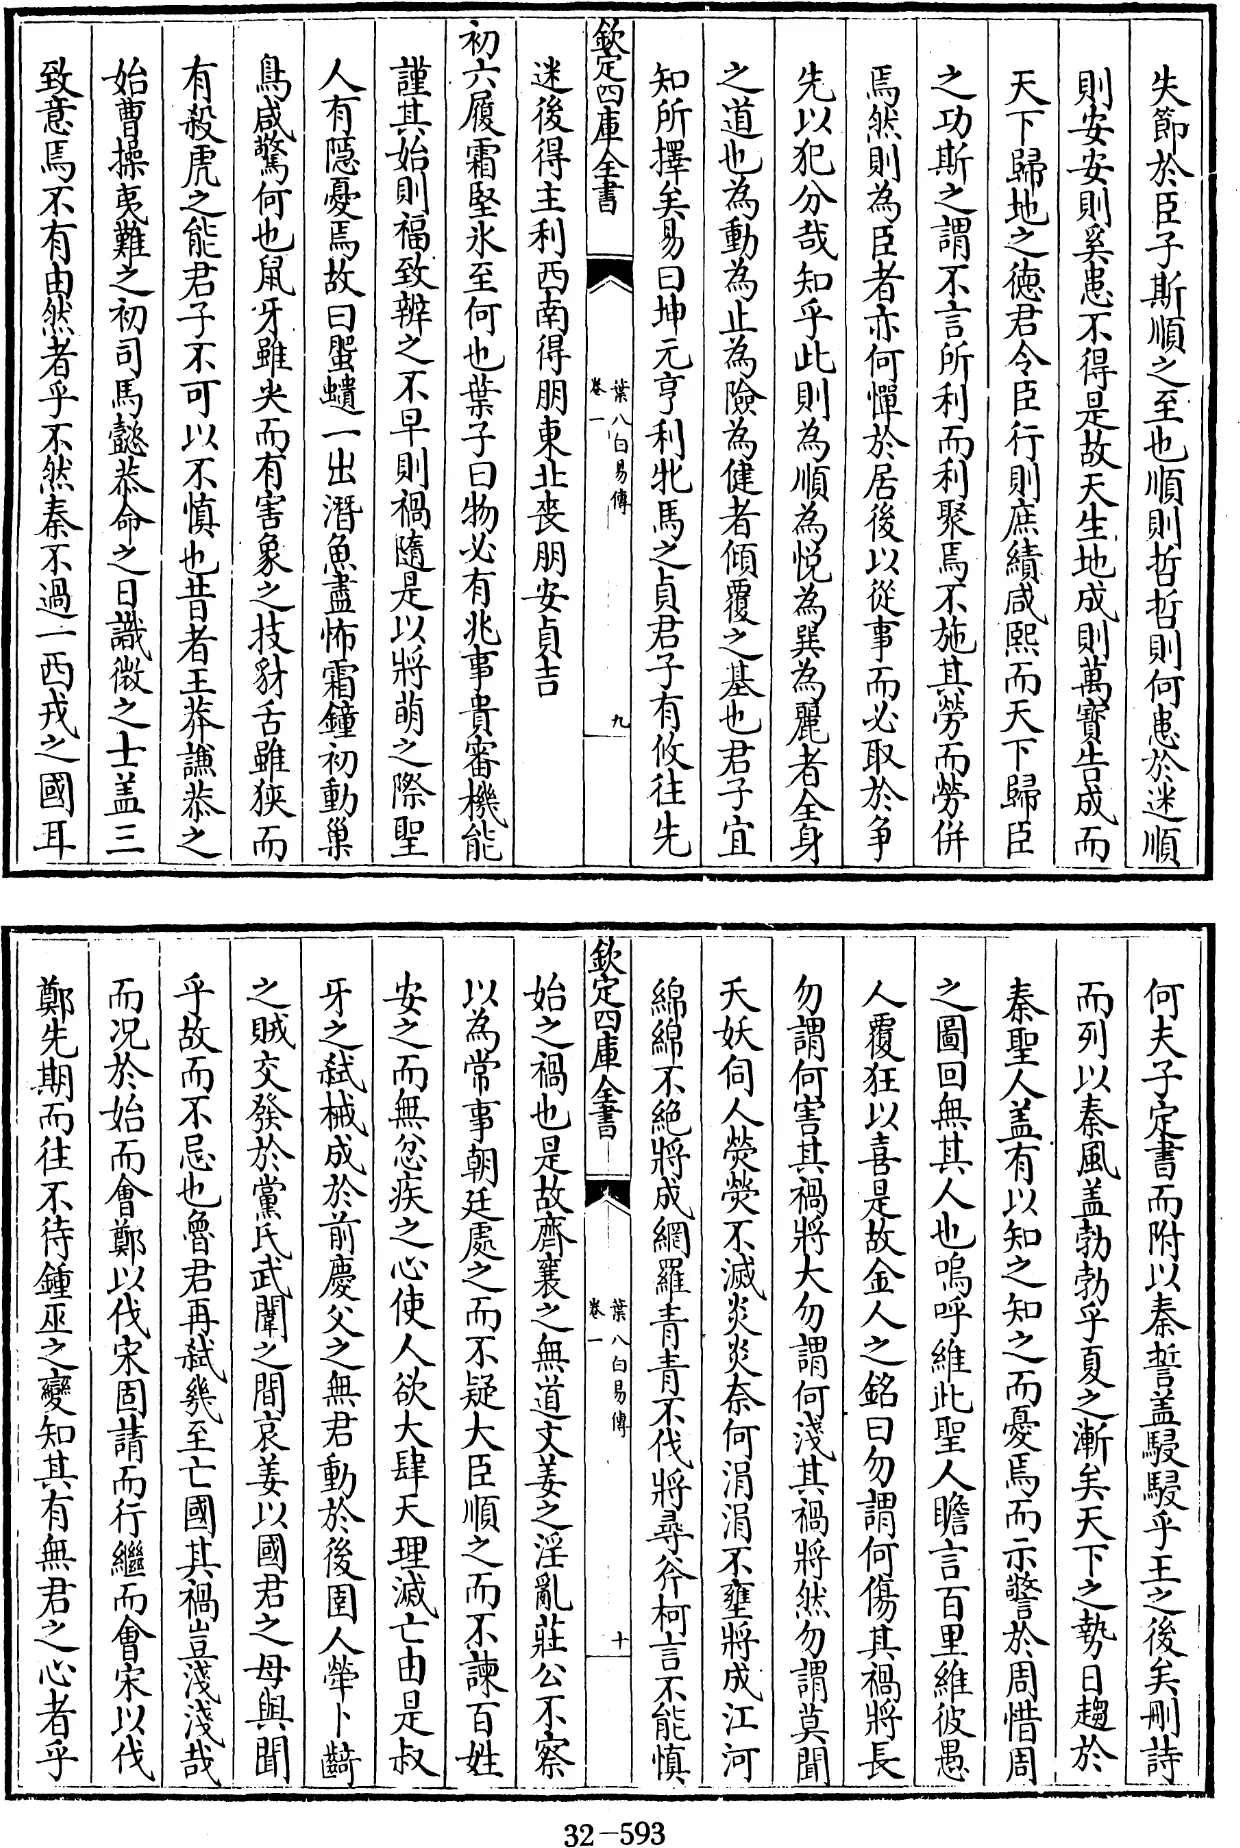 失節於臣子斯順之至也順則哲哲則何患於迷順
則安安則奚患不得是故天生地成則萬寶告成而
天下歸地之德君令臣行則庶績咸熙而天下歸臣
之功斯之謂不言所利而利聚焉不施其勞而勞併
焉然則為臣者亦何憚於居後以從事而必取於争
先以犯分哉知乎此則為順為悦為巽為麗者全身
之道也為動為止為險為健者傾覆之基也君子宜
知所擇矣易曰坤元亨利牝馬之貞君子有攸往先
欽定四庫全書
葉八白易傳
卷一
九
迷後得主利西南得朋東北喪朋安貞吉
初六履霜堅氷至何也葉子曰物必有兆事貴審機能
謹其始則福致辨之不早則禍隨是以將萌之際聖
人有隱憂焉故曰蜰蠵一出潛魚盡怖霜鐘初動巢
鳥咸驚何也鼠牙雖尖而有害象之技豺舌雖狹而
有殺虎之能君子不可以不慎也昔者王莽謙恭之
始曹操夷難之初司馬懿恭命之日識微之士盖三
致意焉不有由然者乎不然秦不過一西戎之國耳
何夫子定書而附以秦誓盖駸駸乎王之後矣刪詩
而列以秦風盖勃勃乎夏之漸矣天下之勢日趨於
秦聖人盖有以知之知之而憂焉而示警於周惜周
之圖回無其人也嗚呼維此聖人瞻言百里維彼愚
人覆狂以喜是故金人之銘曰勿謂何傷其禍將長
勿謂何害其禍將大勿謂何淺其禍將然勿謂莫聞
天妖伺人熒熒不滅炎炎奈何涓涓不壅將成江河
綿綿不絶將成網羅青青不伐將尋斧柯言不能慎
欽定四庫全書
葉八白易傳
卷一
十
始之禍也是故齊襄之無道文姜之淫亂莊公不察
以為常事朝廷處之而不疑大臣順之而不諫百姓
安之而無忿疾之心使人欲大肆天理滅亡由是叔
牙之弑械成於前慶父之無君動於後圉人犖卜齮
之賊交發於黨氏武闈之間哀姜以國君之母與聞
乎故而不忌也魯君再弑幾至亡國其禍豈淺淺哉
而况於始而會鄭以伐宋固請而行繼而會宋以伐
鄭先期而往不待鍾巫之變知其有無君之心者乎
32-593